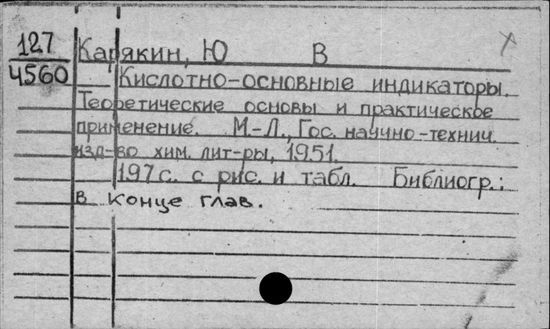 127
4560
Карякин, Ю В
Кислотно-основные индикаторы.
Теоретические основы и практическое
применение. М.-Л., Гос. научно-технич.
изд-во хим. лит-ры, 1951.
197 с. с рис. и табл. Библиогр.:
в конце глав.